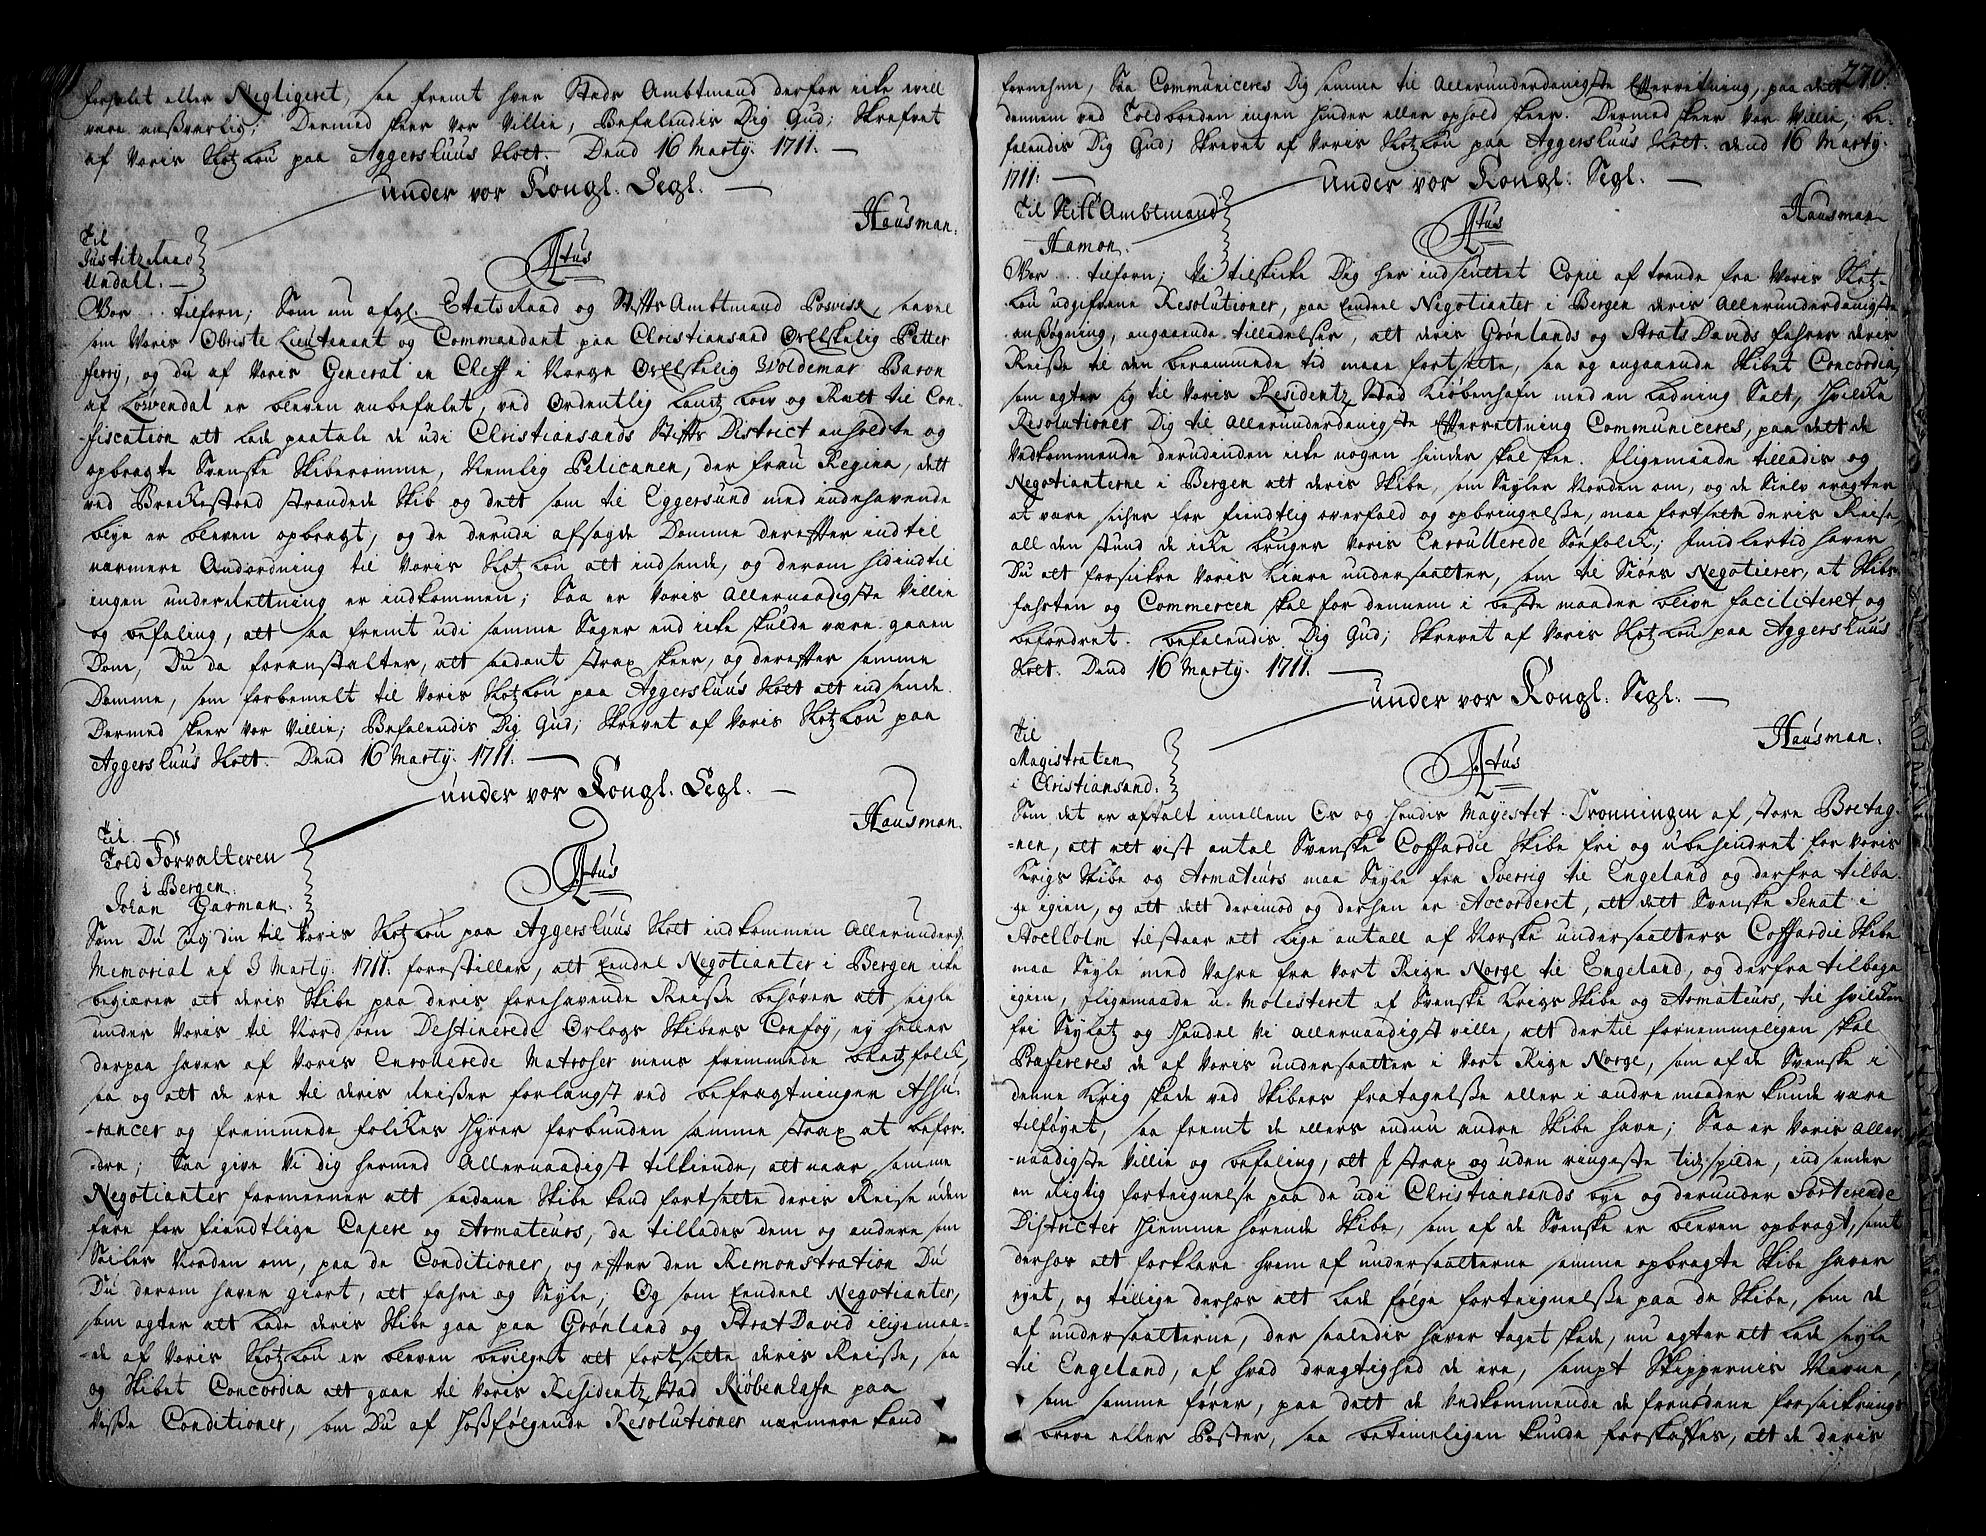 forsølet eller Negligeret, saa fremt hver Stads Ambtmand derfor icke will
være ansvarlig; Dermed skeer vor Villie, Befalendis Dig Gud; Skrefvet
af Voris Slotz Lou paa Aggershuus Slott. Dend 16 Marty. 1711. —
under vor Kongl. Segl. —
Hausman.
Til
Justitz Raad
Undall. —
Ltus
Vor .. tilforn; Som nu afgl. Etats Raad og Stiffts Ambtmand Poswisk, saavel
som Voris Obriste Lieutenant og Commandant paa Christiansand OsElskelig Petter
ferry, og du af Voris General en Cheff i Norge OsElskelig Woldemar Baron
af Løwendal er bleven anbefalet, ved Ordentlig Lantz Low og Rætt til Con-
fiscation att lade paatale de udi Christiansands Stiffts District anholdte og
opbragte Svenske Skiberomme, Nemlig Pelicanen, der frau Regina, dett
ved Breckestoed strandede Skib og dett som til Eggersund med indehavende
blye er bleven opbragt, og de derudi afsagde Domme dereffter indtil
nærmere Andordning til Voris Slotz Lou att indsende, og derom hidindtil
ingen underrettning er indkommen; Saa er Voris Allernaadigste Villie
og befaling, att saa fremt udi samme Sager end icke skulde være gaaen
Dom, Du da foranstalter, att saadant strax skeer, og dereffter samme
Domme, som forbemelt til Voris Slotz Lou paa Aggershuus Slott att indsende.
Dermed skeer vor Villie; Befalendis Dig Gud; Skrevet af Voris Slotz Lou paa
Aggershuus Slott. Dend 16 Marty. 1711. —
under vor Kongl. Segl. —
Hausman.
Til
Told Forvalteren
i Bergen.
Johan Garman.
Ltus
Som Du udj din til Voris Slotz Lou paa Aggershuus Slott indkommen Allerunderd.
Memorial af 3 Marty. 1711. forestiller, att Eendeel Negotianter i Bergen icke
begiærer att deris Skibe paa deris forehavende Reiße behøver att seigle
under Voris til Nordsøen Destinerede Orlogs Skibers Confoy, ey heller
derpaa haver af Voris Enroullerede Matroser mens fremmede baadtzfolck,
saa og att de ere til deris Reißer forlangst ved befragtninger Assu-
rancer og fremmede folckes Hyrer forbunden samme strax at befor-
dre; Saa give Vi dig hermed Allernaadigst tilkiende, att naar samme
Negotianter formeener att saadane Skibe kand fortsette deris Reise uden
fare for fiendtlige Capere og Armateurs, da tillades dem og andre som
Seiler Norden om, paa de Conditioner, og effter den Remonstration Du
Du derom haver giort, att fahre og Seyle; Og som Eendeel Negotianter,
som agter att lade deris Skibe gaa paa Grønland og Strat David iligemaa-
de af Voris Slotz Lou er bleven bevilget att fortsette deris Reiße, saa
og Skibet Concordia att gaae til Voris Residentz Stad Kiøbenhafn paa
Visse Conditioner, som Du af Hosfølgende Resolutioner nærmere kand
270.
fornehm, Saa Communiceres Dig samme til Allerunderdanigste Efterretning, paa det
dennem ved Toldboeden ingen hinder eller ophold skeer. Dermed skeer vor Villie, be-
falendis Dig Gud; Skrevet af Voris Slotz Lou paa Aggershuus Slott. dend 16 Marty.
1711. —
under vor Kongl. Segl. —
Hausman
Til Stiffts Ambtmand
Hamon.
Ltus
Vor .. tilforn; Vi tilskicke Dig her indsluttet Copie af trende fra Voris Slotz-
Lou udgifvene Resolutioner, paa Eendeel Negotianter i Bergen deris Allerunderdanigste
ansøgning, angaaende tilladelser, att deris Grønlands og Strats Davids fahrer deris
Reiße til den berammede tid maa fortsette, saa og angaaende Skibet Concordia,
som agter sig til Voris Residentz Stad Kiøbenhafn med en ladning Salt, hvilcke
Resolutioner Dig til Allerunderdanigste Efterrettning Communiceres, paa dett de
Vedkommende derudinden icke nogen hinder skal skee. Iligemaade tillades og
Negotianterne i Bergen att deris Skibe, som Seyler Norden om, og de Sielv eragter
at være sicker for fiendtlig overfald og opbringelse, maa fortsette deris Reise,
all den stund de icke bruger Voris Enroullerede Søefolck; Imidlertid haver
Du att forsickre Voris kiære undersaatter, som til Siøes Negotierer, at Skibs
fahrten og Commercen skal for dennem i beste maader blive faciliteret og
befordret. befalendis Dig Gud; Skrevet af Voris Slotz Lou paa Aggershuus
Slott. Dend 16 Marty. 1711. —
under vor Kongl. Segl. —
Hausman.
Til
Magistraten
i Christiansand.
Ltus
Som det er aftalt imellem Os og Hendis Mayestet Dronningen af store Bretag-
nen, att ett vist antal Svenske Coffardie Skibe fri og ubehindret for voris
Krigs Skibe og Armateurs maa Seyle fra Sverrig til Engeland og derfra tilba-
ge igien, og att dett derimod og derhen er Accorderet, att dett Svenske Senat i
Stockholm tilstaar ett lige antall af Norske undersaatters Coffardie Skibe
maa Seyle med Vahre fra Vort Rige Norge til Engeland, og derfra tilbage
igien, Iligemaade u-Molesteret af Svenske Krigs Skibe og Armateurs, til hvilcken
fri Seylatz og Handel Vi Allernaadigst ville, att dertil fornemmeligen skal
Præfereres de af Voris undersaatter i Vort Rige Norge, som af de Svenske i
denne Krig skade ved Skibers fratagelße eller i andre maader kunde være
tilføyet, saa fremt de ellers endnu andre Skibe have; Saa er Voris Aller-
naadigste Villie og befaling, att I strax og uden ringeste tidsspilde, indsender
en Rigtig fortegnelse paa de udi Christiansands bye og derunder Sorterende
Districter Hiemme hørende Skibe, som af de Svenske er bleven opbragt, samt
derhos att forklare hvem af undersaatterne samme opbragte Skibe haver
eyet, og tillige derhos att lade følge forteignelße paa de Skibe, som de
af undersaatterne, der saaledis haver taget skade, nu agter att lade seyle
til Engeland, af hvad dragtighed de ere, sampt Skippernis Navne,
som samme fører, paa dett de Vedkommende de fornødene forsickrings
breve eller Paster, saa betimeligen kunde forskaffes, att de deris